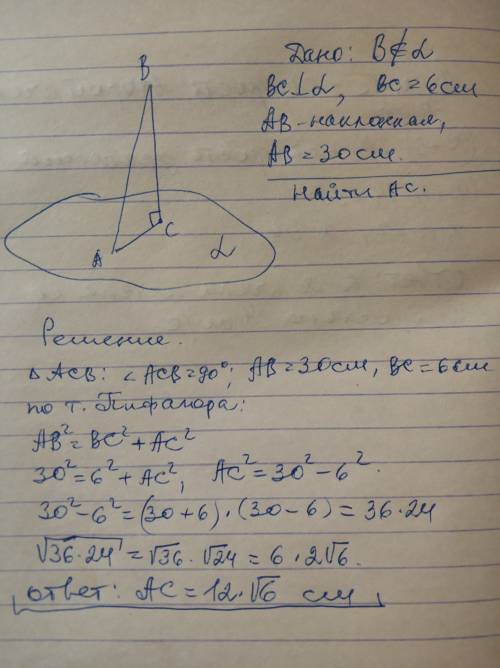 Дано: B∉α
BC⊥α, BC=6см
AB-наклонная,
AB=30см.
Найти AC.
B
C
A
α
Решение.
△ACB: ∠ACB=90°; AB=30см, BC=6см
по т. Пифагора:
AB²=BC²+AC²
30²=6²+AC², AC²=30²-6².
30²-6²=(30+6)·(30-6)=36·24
√36·24=√36·√24=6·2√6.
ответ: AC=12·√6 см